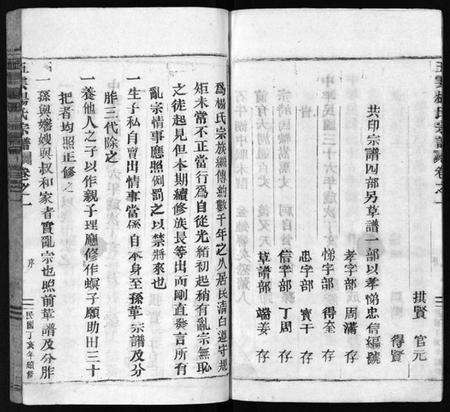 五雲楊氏宗譜 卷之一
拱賢 官元
得賢
共印宗譜四部另草譜一部以孝悌忠信編號
孝字部 周滿 存
悌字部 得奎 存
忠字部 寶干 存
信字部 丁周 存
草譜部 端姜 存
中華民國三十六年
爲楊氏宗族繼傳約數千年之久居民清白遵守規
矩未常不正當行爲自從光緒初起稍有亂宗無恥
之徒起見但本期續修族長等出向剛直發言所有
亂宗情事應照例罰之以禁將來也
一生子私自賣出情事當係自本身至孫輩宗譜及分
胙三代除之
一養他人之子以作親子理應修作螟子願助田三十
把者均照正修之
一孫與嬸嫂與叔和家者實亂宗也照前輩譜及分胙
五雲楊氏宗譜 卷之一 序 民國丁亥年續修